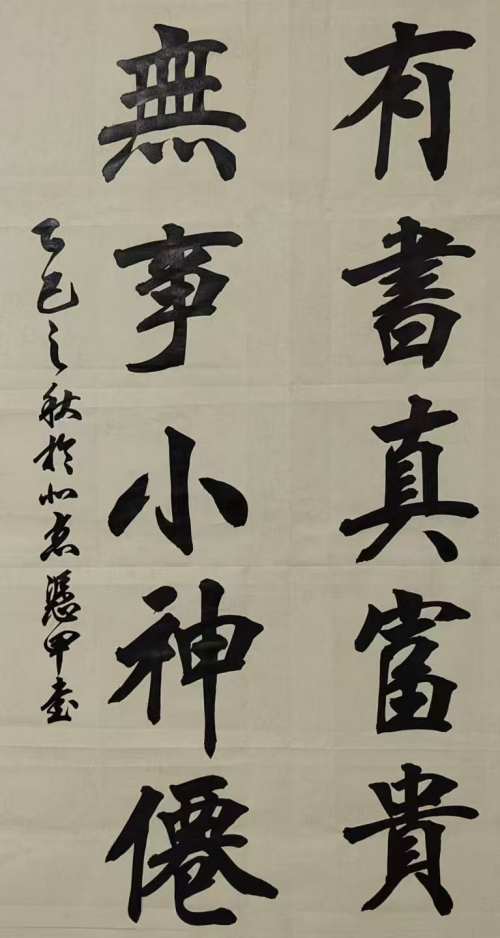 有書真富貴
無事小神僊
乙巳之秋於北京憑甲書